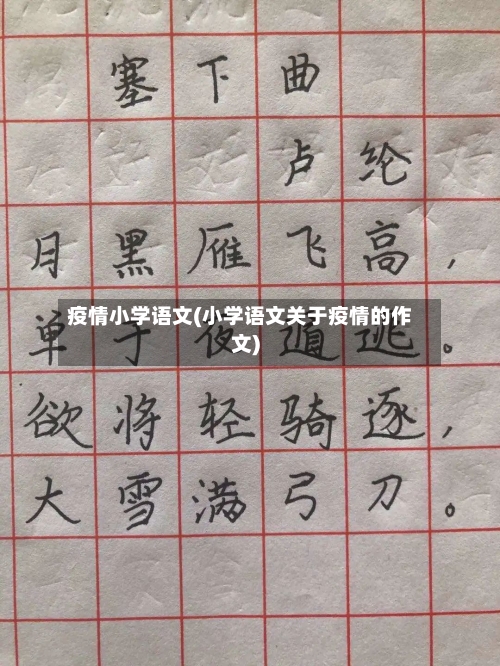 塞下曲
卢纶
月黑雁飞高，
疫情小学语文(小学语文关于疫情的作
文)
单于夜遁逃。
欲将轻骑逐，
大雪满弓刀。